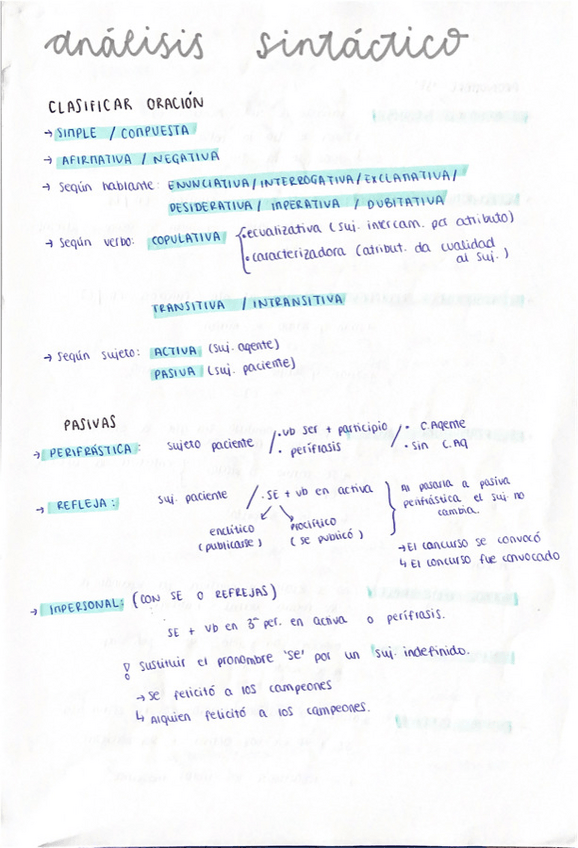 análisis sintáctico
CLASIFICAR ORACIÓN
→ SIMPLE / COMPUESTA
→ AFIRMATIVA / NEGATIVA
→ Según hablante: ENUNCIATIVA/INTERROGATIVA/EXCLAMATIVA/
DESIDERATIVA/ IMPERATIVA / DUBITATIVA
→ Según verbo: COPULATIVA
• ecualizativa (suj. intercam. por atributo)
• caracterizadora (atribut. da cualidad
al suj.)
TRANSITIVA / INTRANSITIVA
→ Según sujeto: ACTIVA (suj. agente)
PASIVA (suj. paciente)
PASIVAS
→ PERIFRÁSTICA: sujeto paciente / • vb ser + participio / • C.Agente
• perífrasis • sin C.AG
→ REFLEJA: suj. paciente / • SE + vb en activa
enclítico proclítico
(publicarse) (se publicó)
Al pasarla a pasiva
perifrástica el suj. no
cambia.
→ El concurso se convocó
↳ El concurso fue convocado
→ IMPERSONAL: (CON SE O REFREJAS)
SE + vb en 3ª per. en activa o perífrasis.
! sustituir el pronombre 'se' por un suj. indefinido.
→ se felicitó a los campeones
↳ Alguien felicitó a los campeones.